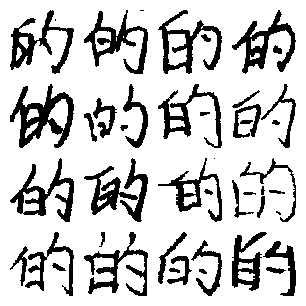 的的的的
的的的的
的的的的
的的的的